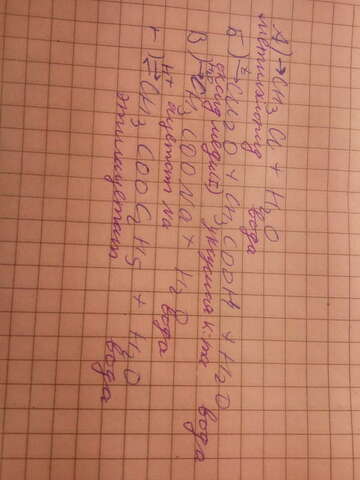 А) → CH3Cl + H2O
метилхлорид вода
Б) t→ Cu2O + CH3COOH + H2O
оксид меди(I) уксусная к-та вода
В) → CH3COONa + H2O
ацетат Na вода
Г) H+ ⇄ CH3COOC2H5 + H2O
этилацетат вода